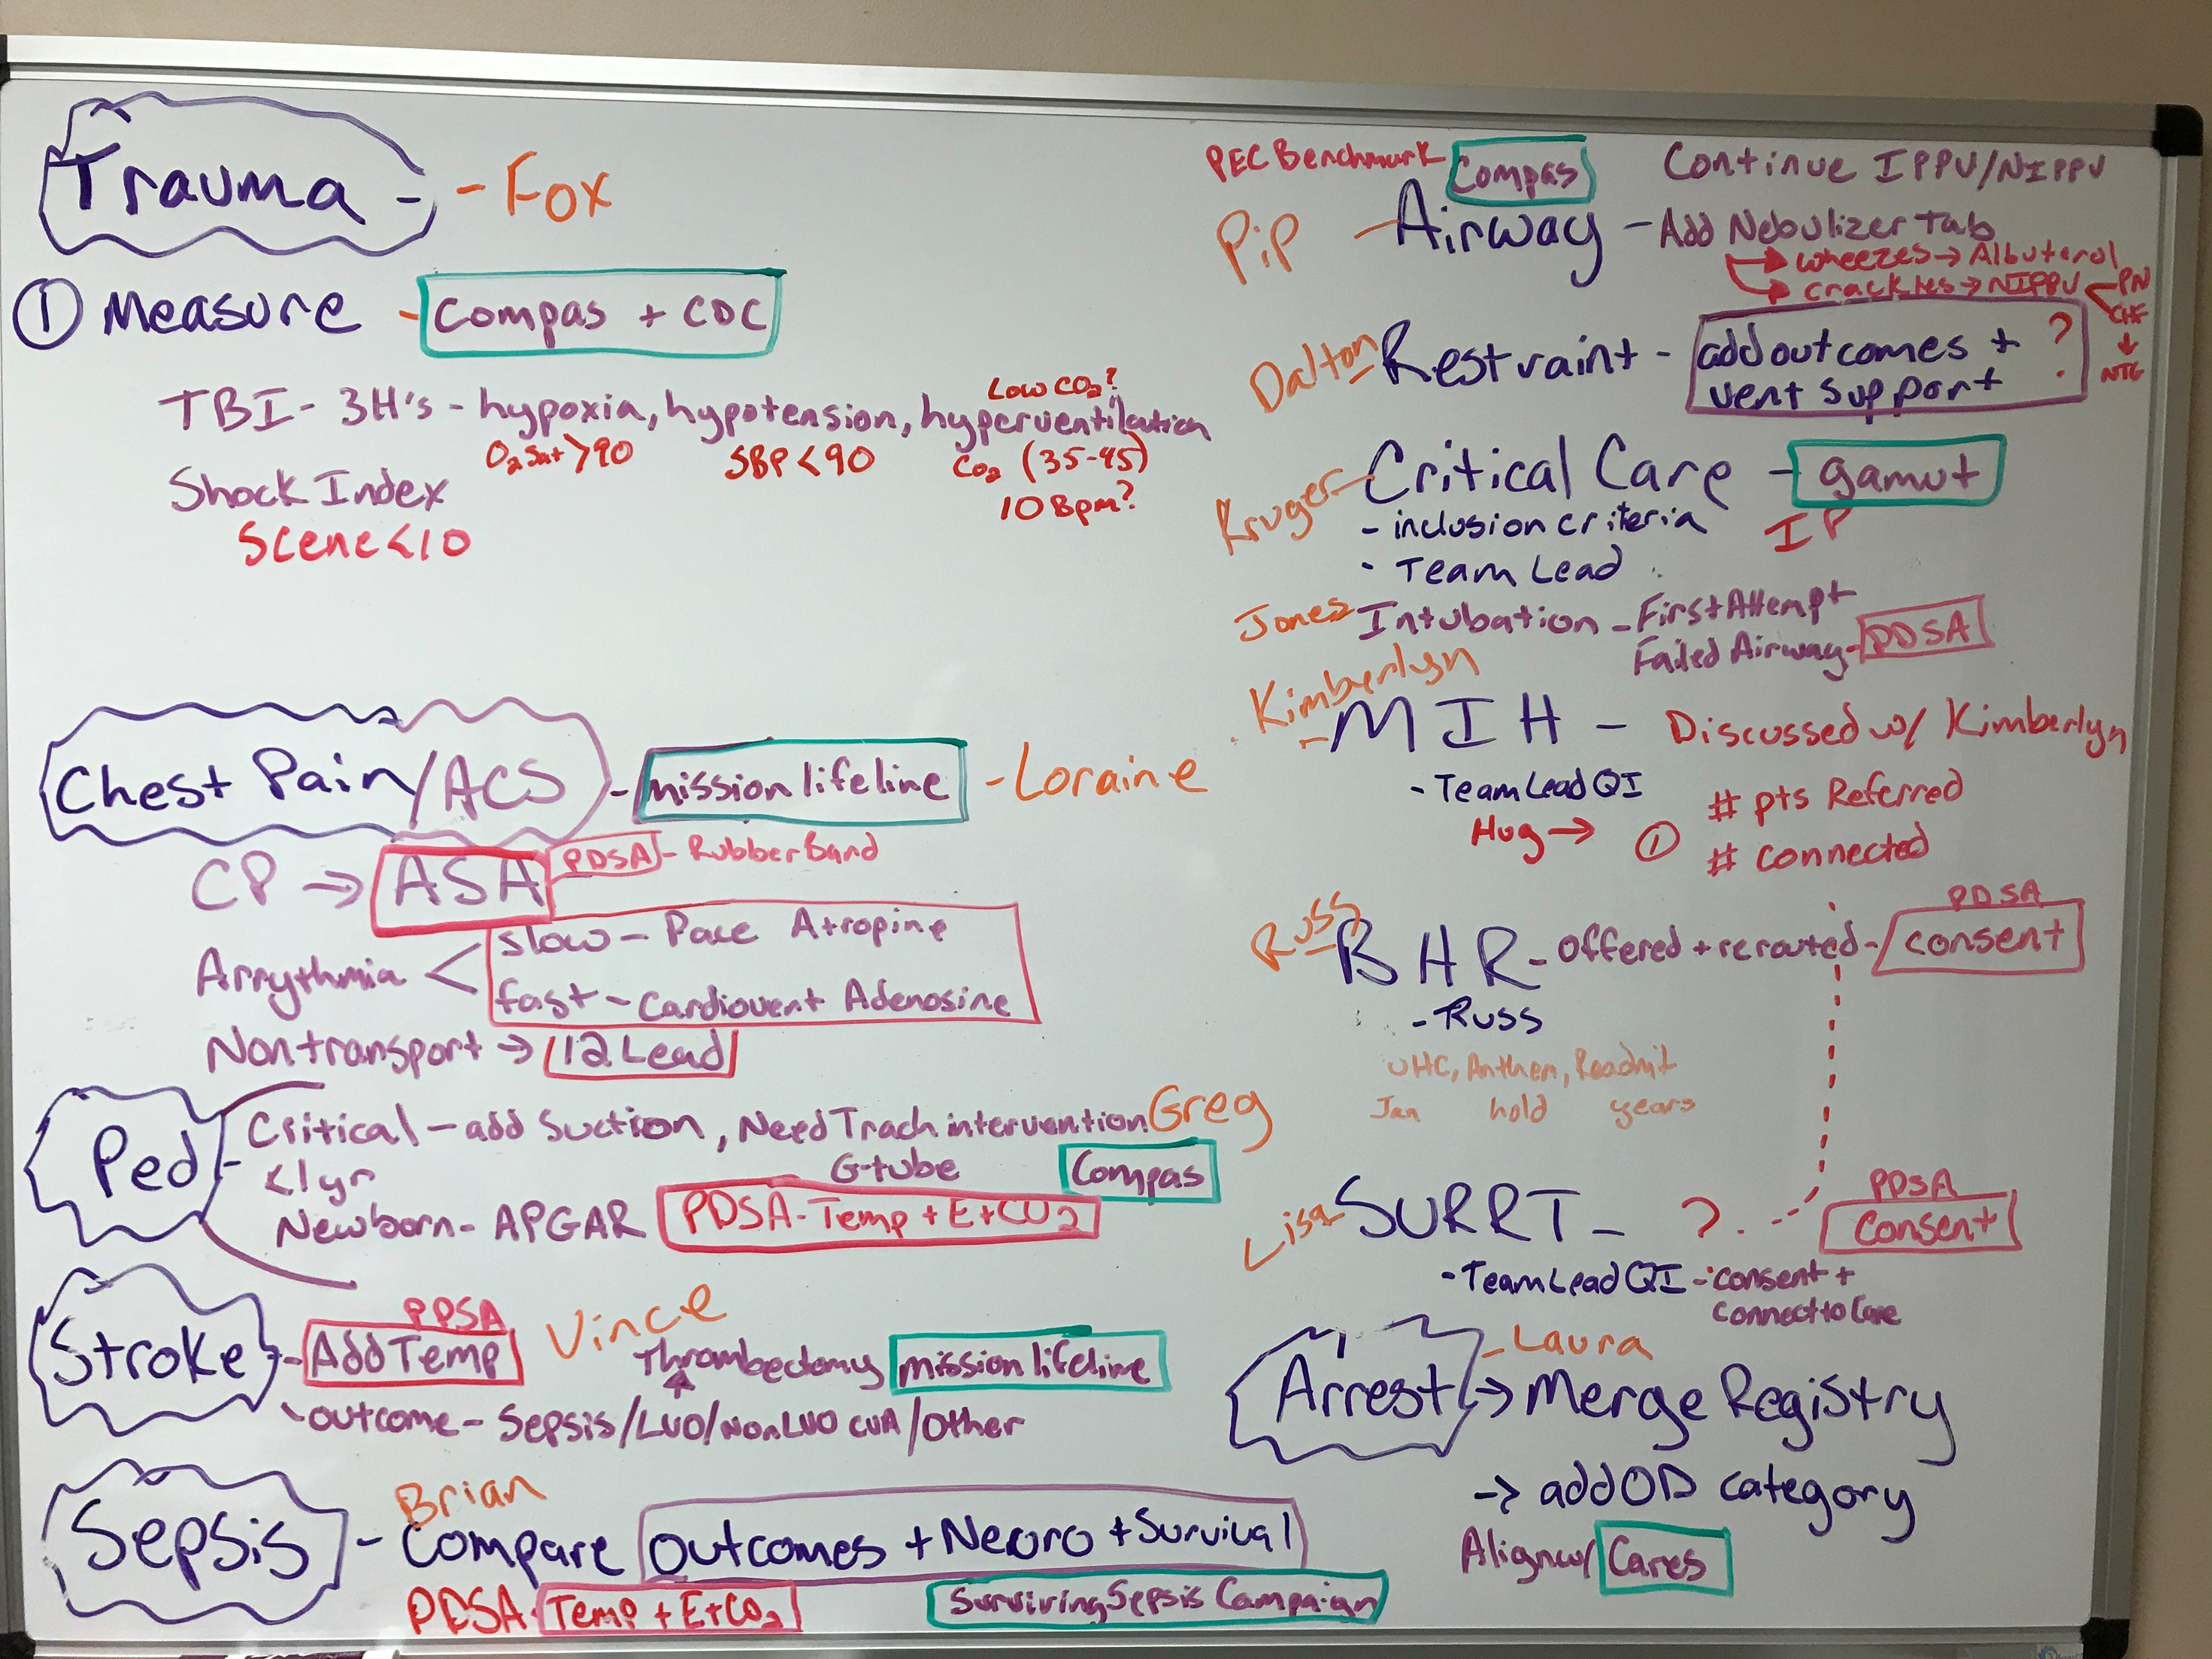 Trauma - - Fox
① Measure - Compas + CDC
TBI - 3H's - hypoxia, hypotension, hyperventilation
Low CO2?
O2 Sat >90 SBP <90 CO2 (35-45)
10 Bpm?
Shock Index
Scene <10
Chest Pain/ACS - mission lifeline - Loraine
CP → ASA PDSA - Rubber Band
Arrythmia < slow - Pace Atropine
fast - Cardiovert Adenosine
Nontransport → 12 Lead
Ped - Critical - add Suction, Need Trach intervention Greg
<1yr G-tube Compas
Newborn - APGAR PDSA - Temp + EtCO2
Stroke - Add Temp PDSA Vince
Thrombectomy mission lifeline
outcome - Sepsis/LVO/Non LVO CVA/Other
Brian
Sepsis - Compare Outcomes + Neuro + Survival
PDSA - Temp + EtCO2 Surviving Sepsis Campaign
PEC Benchmark Compas Continue IPPV/NIPPV
PiP - Airway - Add Nebulizer Tab
wheezes → Albuterol
crackles → NIPPV < PN
CHF
↓
NTG
Dalton - Restraint - add outcomes + ?
vent support
Kruger - Critical Care - gamut
- inclusion criteria IP
- Team Lead
Jones Intubation - First Attempt
Failed Airway - PDSA
Kimberlyn
- MIH - Discussed w/ Kimberlyn
- Team Lead QI # pts Referred
Hug → ① # connected
PDSA
Russ - BHR - Offered + rerouted - consent
- Russ
UHC, Anthem, Readmit
Jan hold years
PDSA
Lisa SURRT - ? Consent
- Team Lead QI - consent +
connect to Care
- Laura
Arrest → Merge Registry
→ add OD category
Align w/ Cares